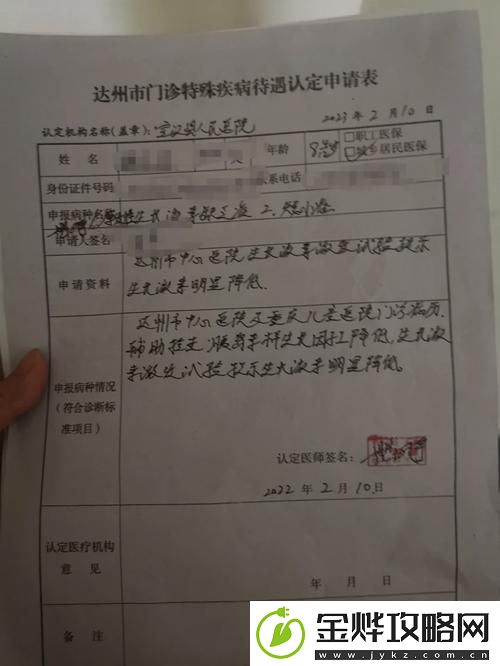 达州市门诊特殊疾病待遇认定申请表
认定机构名称(盖章): 宣汉县人民医院 2023 年 2 月 10
姓 名 年龄 8岁 □职工医保
□城乡居民医保
身份证件号码 系系电话
申报病种名称 生长激素缺乏症 2.矮小症
申请人签名
申请资料 达州市中心医院生长激素激发试验提示
生长激素明显降低.
达州市中心医院及重庆儿童医院门诊病历.
辅助检查:胰岛素样生长因子降低,生长激
素激发试验提示生长激素明显降低。
申报病种情况
(符合诊断标
准项目)
认定医师签名:
2022 年 2 月 10 日
认定医疗机构
意 见
年 月 日
备 注
金烨攻略网
www.jykz.com.cn